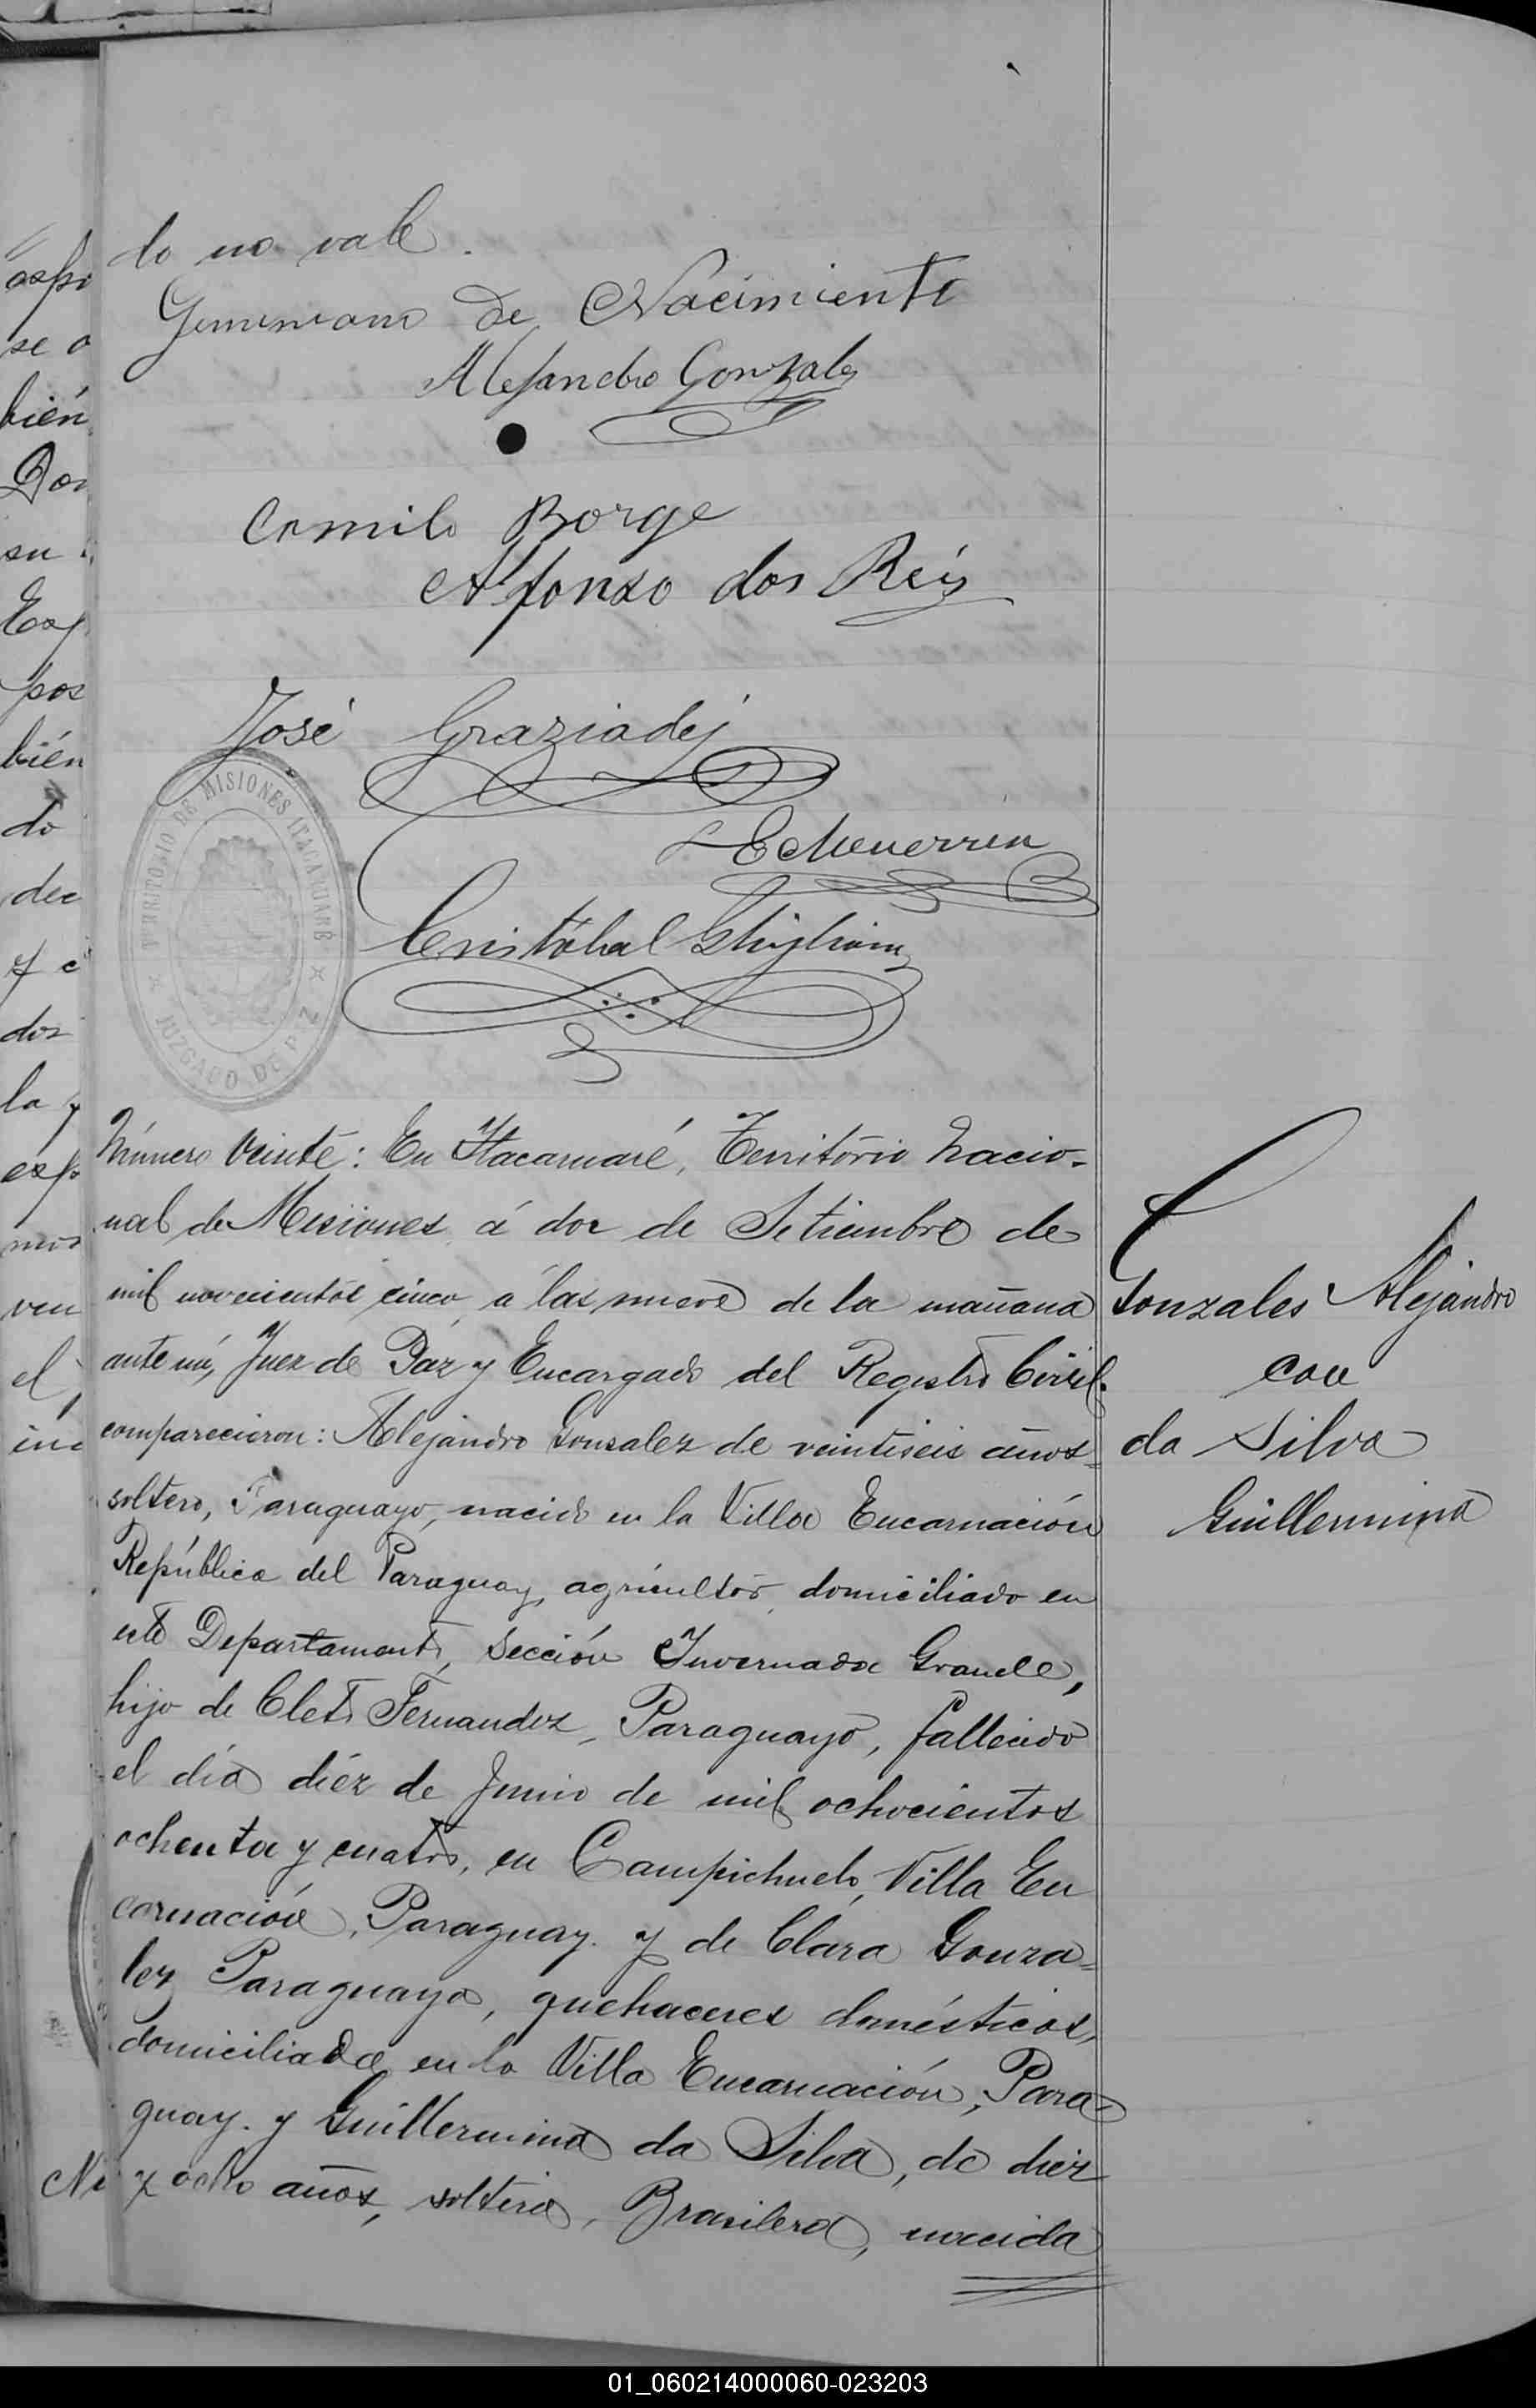 do no vale.
de Nacimiento
Alejandro Gonzales
Camilo Borge
Alfonso dos Reis
José Graziadej
TERRITORIO DE MISIONES ITACARUARÉ
JUZGADO DE PAZ
Echeverria
Cristóbal
Número Veinte: En Itacaruaré, Território Nacio-
nal de Misiones á dos de Setiembre de
mil novecientos cinco á las nueve de la mañana
ante mí, Juez de Páz y Encargado del Registro Civil.
comparecieron: Alejandro Gonsalez de veintiseis años
soltero, Paraguayo, nacido en la Villa Encarnación
República del Paraguay, agricultor, domiciliado en
este Departamento, Sección Invernada Grande,
hijo de Cleto Fernandez, Paraguayo, fallecido
el día diéz de Junio de mil ochocientos
ochenta y cuatro, en Campichuelo, Villa En
carnación, Paraguay. y de Clara Gonza-
lez Paraguaya, quehaceres domésticos,
domiciliada en la Villa Encarnación, Para-
guay. y Guillermina da Silva, de diez
y ocho años, soltera, Brasilera, nacida
Gonzales Alejandro
con
da Silva
Guillermina
01_060214000060-023203